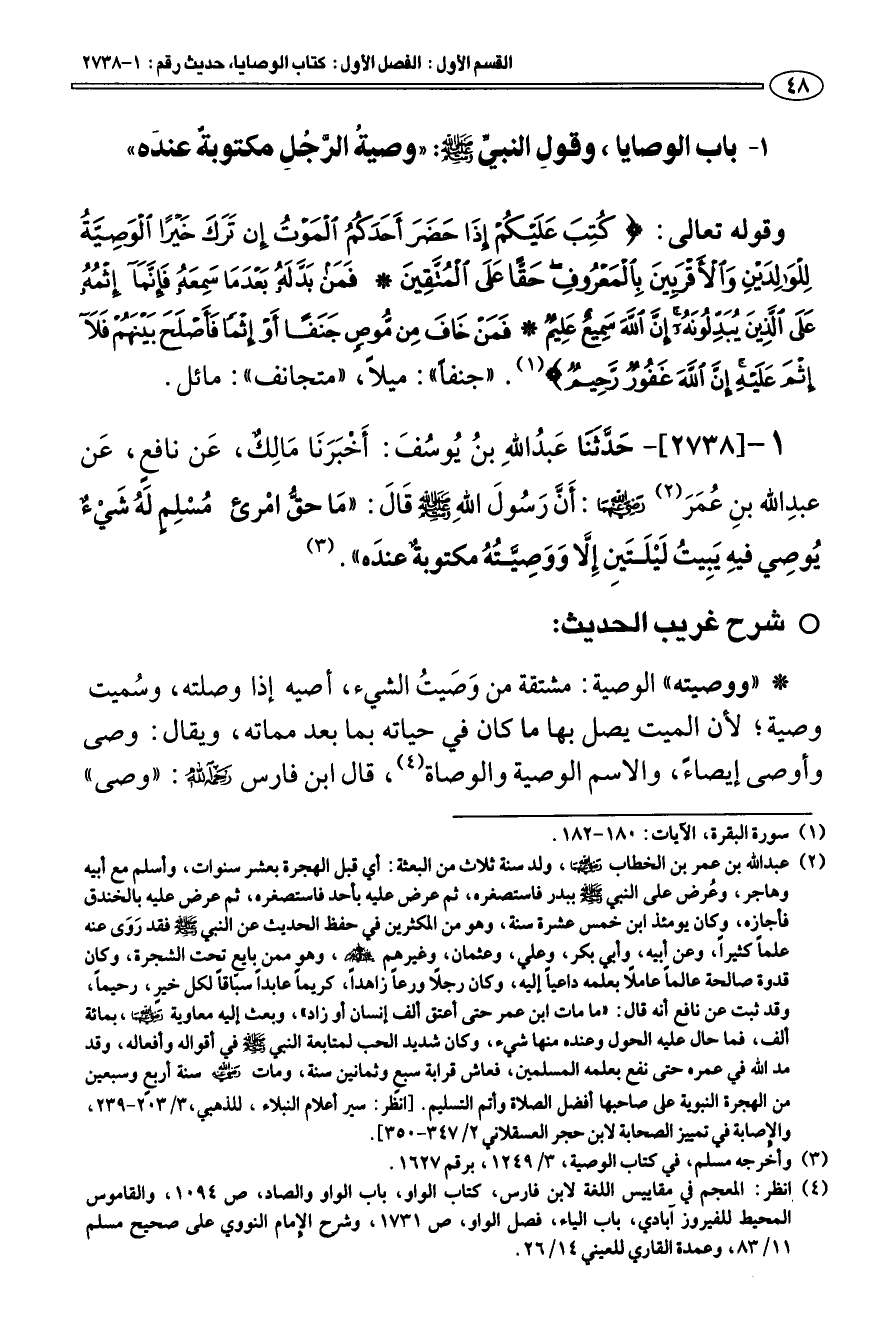 القسم الأول: الفصل الأول: كتاب الوصايا، حديث رقم: ١-٢٧٣٨
٤٨
١- باب الوصايا، وقولِ النبيِّ ﷺ: «وصيةُ الرَّجُلِ مكتوبةٌ عندَه»
وقوله تعالى: ﴿ كُتِبَ عَلَيْكُمْ إِذَا حَضَرَ أَحَدَكُمُ الْمَوْتُ إِن تَرَكَ خَيْرًا الْوَصِيَّةُ
لِلْوَالِدَيْنِ وَالْأَقْرَبِينَ بِالْمَعْرُوفِ حَقًّا عَلَى الْمُتَّقِينَ * فَمَنْ بَدَّلَهُ بَعْدَمَا سَمِعَهُ فَإِنَّمَا إِثْمُهُ
عَلَى الَّذِينَ يُبَدِّلُونَهُ إِنَّ اللَّهَ سَمِيعٌ عَلِيمٌ * فَمَنْ خَافَ مِن مُّوصٍ جَنَفًا أَوْ إِثْمًا فَأَصْلَحَ بَيْنَهُمْ فَلَا
إِثْمَ عَلَيْهِ إِنَّ اللَّهَ غَفُورٌ رَّحِيمٌ﴾(١). «جنفاً»: ميلاً، «متجانف»: مائل.
١-[٢٧٣٨]- حَدَّثَنَا عَبدُاللهِ بنُ يُوسُفَ: أَخْبَرَنَا مَالِكٌ، عَن نافعٍ، عَن
عبدِالله بنِ عُمَرَ(٢) رضي الله عنهما: أَنَّ رَسُولَ اللهِ ﷺ قَالَ: «مَا حقُّ امْرئ مُسْلِمٍ لَهُ شَيْءٌ
يُوصِي فيهِ يَبِيتُ لَيْلَتَينِ إِلَّا وَوَصِيَّتُهُ مكتوبةٌ عندَه».(٣)
○ شرح غريب الحديث:
* «ووصيته» الوصية: مشتقة من وَصَيتُ الشيء، أصيه إذا وصلته، وسُميت
وصية؛ لأن الميت يصل بها ما كان في حياته بما بعد مماته، ويقال: وصى
وأوصى إيصاءً، والاسم الوصية والوصاة(٤)، قال ابن فارس رحمه الله: «وصى»
(١) سورة البقرة، الآيات: ١٨٠-١٨٢.
(٢) عبدالله بن عمر بن الخطاب رضي الله عنهما، ولد سنة ثلاث من البعثة: أي قبل الهجرة بعشر سنوات، وأسلم مع أبيه
وهاجر، وعُرض على النبي ﷺ ببدر فاستصغره، ثم عرض عليه بأحد فاستصغره، ثم عرض عليه بالخندق
فأجازه، وكان يومئذ ابن خمس عشرة سنة، وهو من المكثرين في حفظ الحديث عن النبي ﷺ فقد رَوَى عنه
علماً كثيراً، وعن أبيه، وأبي بكر، وعلي، وعثمان، وغيرهم رضي الله عنهم، وهو ممن بايع تحت الشجرة، وكان
قدوة صالحة عالماً عاملاً بعلمه داعياً إليه، وكان رجلاً ورعاً زاهداً، كريماً عابداً سبّاقاً لكل خيرٍ، رحيماً،
وقد ثبت عن نافع أنه قال: «ما مات ابن عمر حتى أعتق ألف إنسان أو زاد»، وبعث إليه معاوية رضي الله عنه، بمائة
ألف، فما حال عليه الحول وعنده منها شيء، وكان شديد الحب لمتابعة النبي ﷺ في أقواله وأفعاله، وقد
مد الله في عمره حتى نفع بعلمه المسلمين، فعاش قرابة سبعٍ وثمانين سنة، ومات رضي الله عنه سنة أربعٍ وسبعين
من الهجرة النبوية على صاحبها أفضل الصلاة وأتم التسليم. [انظر: سير أعلام النبلاء، للذهبي،٣/ ٢٠٣-٢٣٩،
والإصابة في تمييز الصحابة لابن حجر العسقلاني ٢/ ٣٤٧-٣٥٠].
(٣) وأخرجه مسلم، في كتاب الوصية، ٣/ ١٢٤٩، برقم ١٦٢٧.
(٤) انظر: المعجم في مقاييس اللغة لابن فارس، كتاب الواو، باب الواو والصاد، ص ١٠٩٤، والقاموس
المحيط للفيروز آبادي، باب الياء، فصل الواو، ص ١٧٣١، وشرح الإمام النووي على صحيح مسلم
١١/ ٨٣، وعمدة القاري للعيني ١٤/ ٢٦.